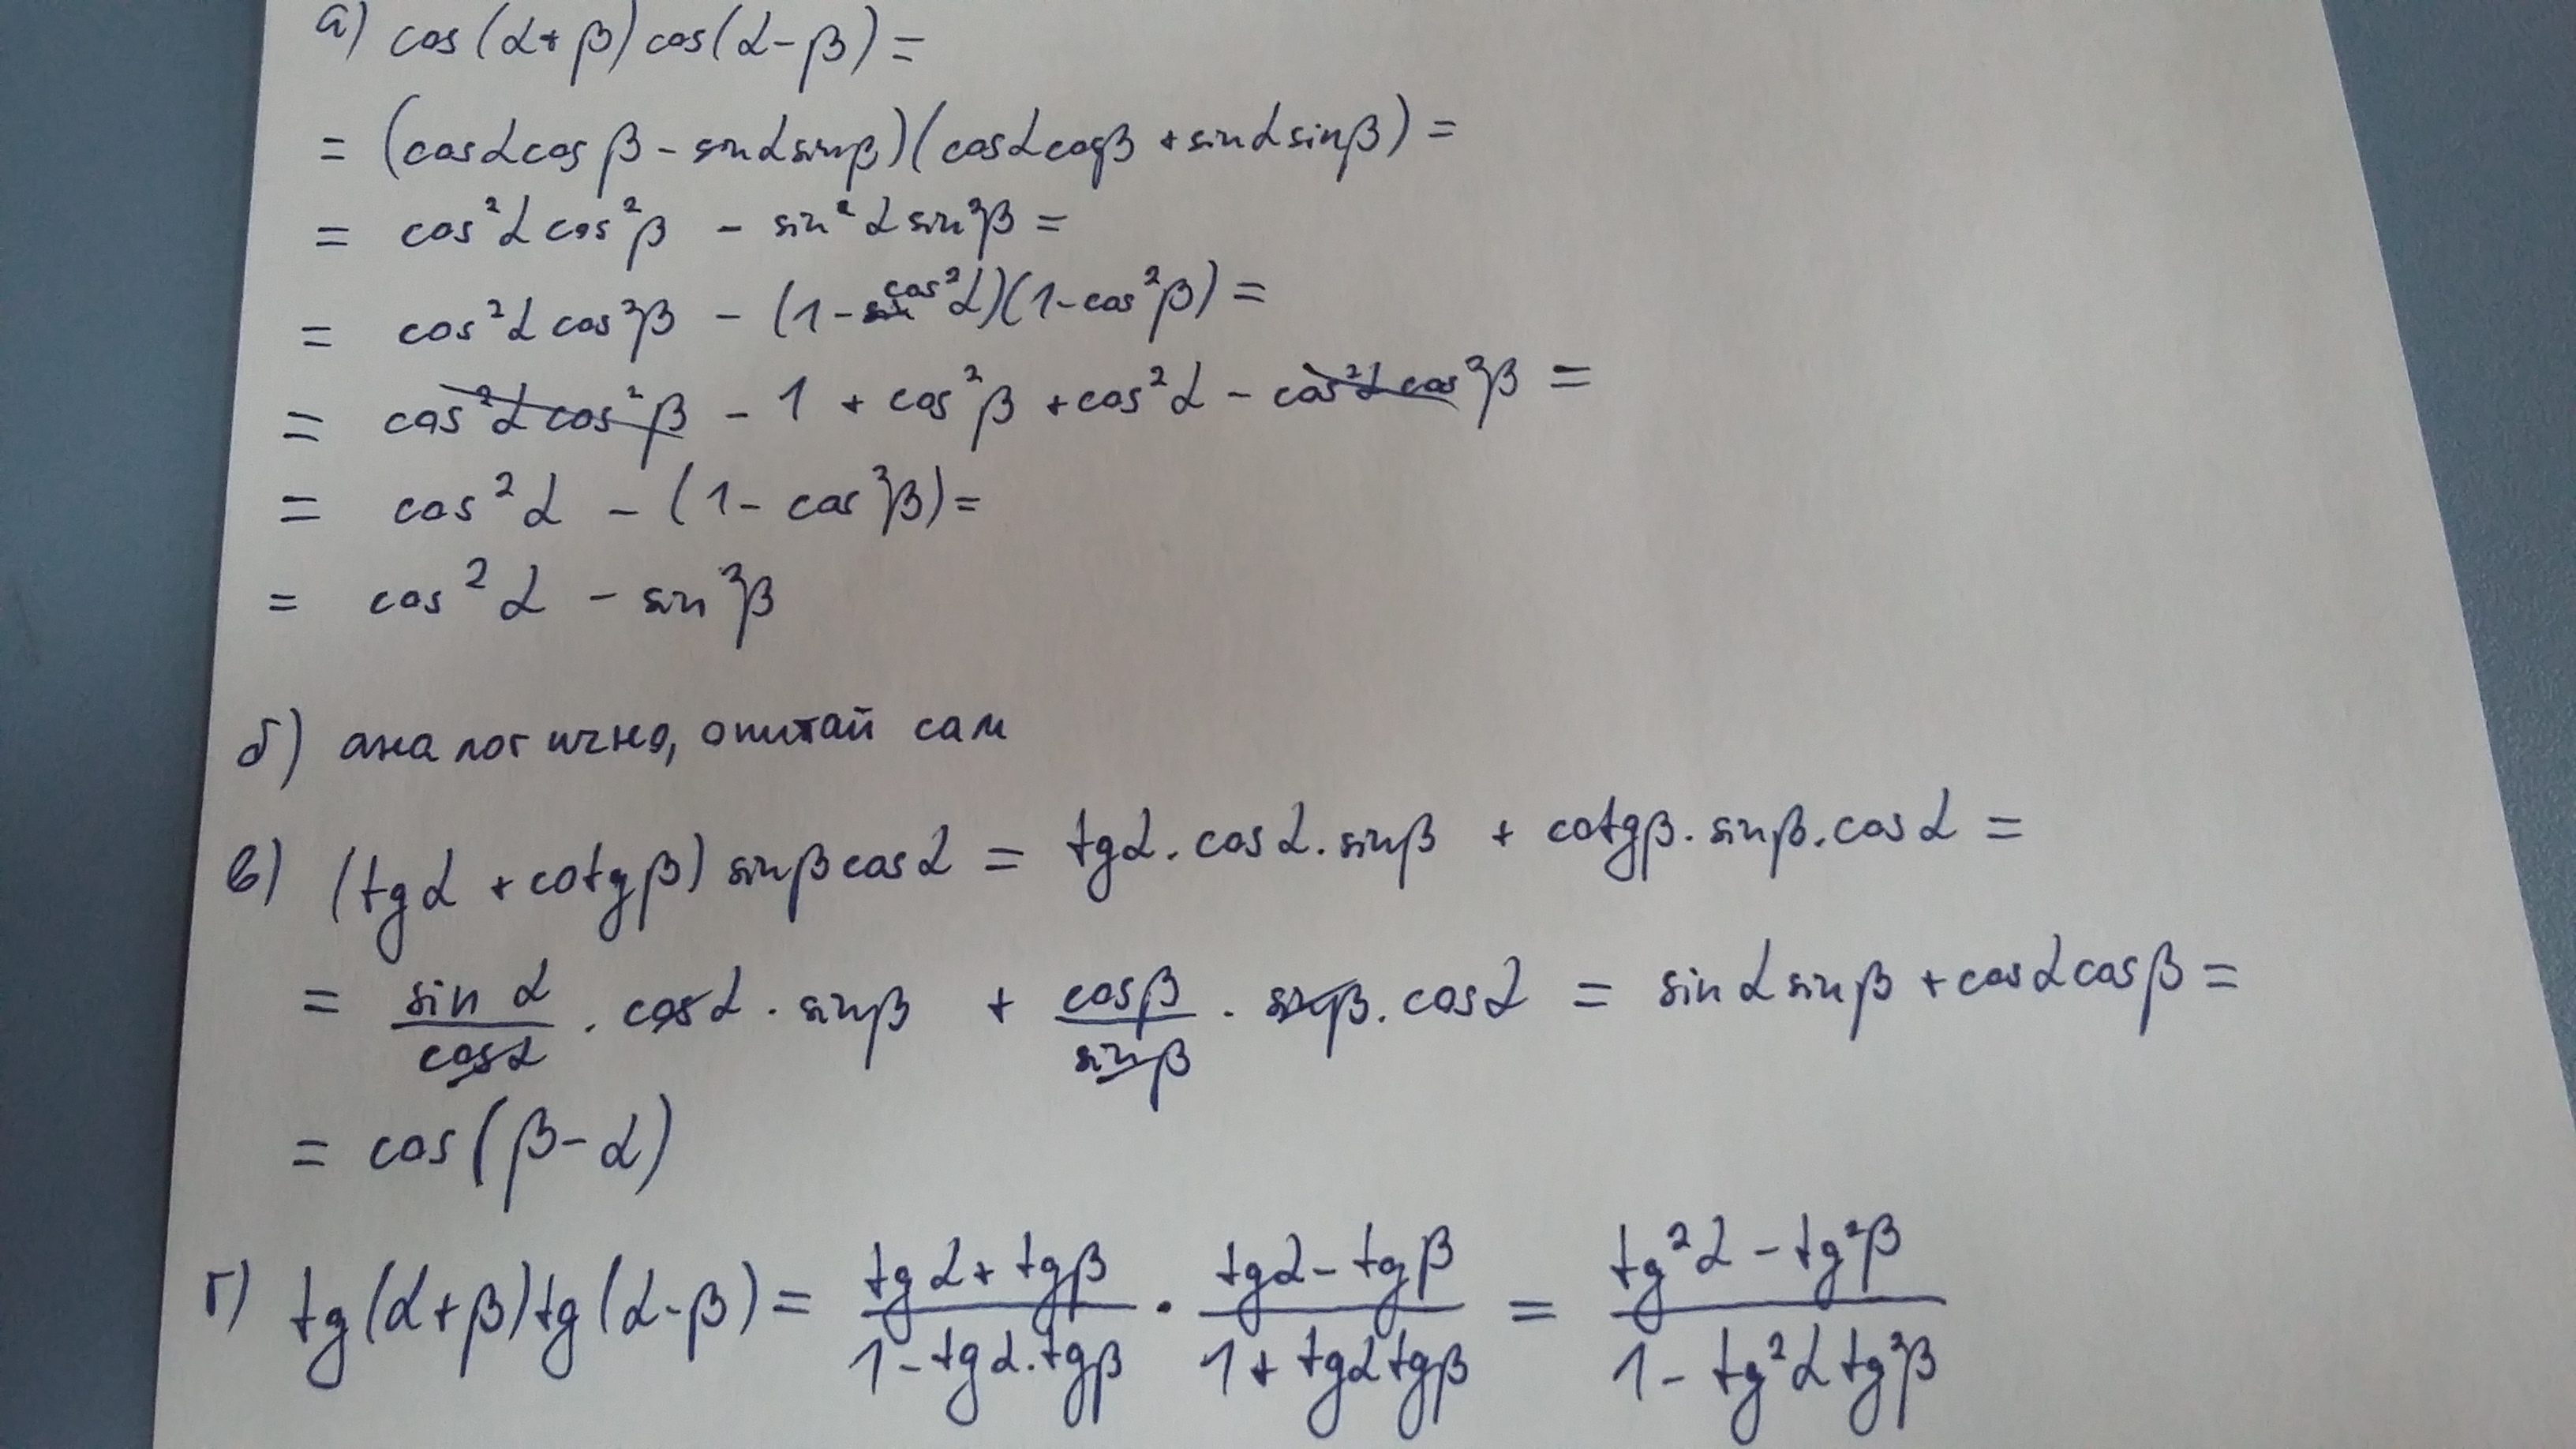 а) cos(α+β)cos(α-β)=
= (cosαcosβ - sinαsinβ)(cosαcosβ + sinαsinβ) =
= cos²αcos²β - sin²αsin²β =
= cos²αcos²β - (1-cos²α)(1-cos²β) =
= cos²αcos²β - 1 + cos²β + cos²α - cos²αcos²β =
= cos²α - (1 - cos²β) =
= cos²α - sin²β
б) аналогично, опитай сам
в) (tgα + cotgβ) sinβcosα = tgα.cosα.sinβ + cotgβ.sinβ.cosα =
= sinα/cosα . cosα . sinβ + cosβ/sinβ . sinβ . cosα = sinαsinβ + cosαcosβ =
= cos(β-α)
г) tg(α+β)tg(α-β) = (tgα + tgβ)/(1 - tgα.tgβ) . (tgα - tgβ)/(1 + tgαtgβ) = (tg²α - tg²β)/(1 - tg²αtg²β)